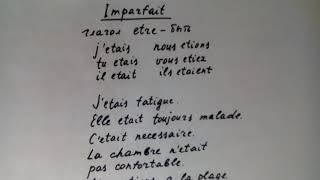 Imparfait
глагол etre - быть
j'etais nous etions
tu etais vous etiez
il etait ils etaient
J'etais fatigue.
Elle etait toujours malade.
C'etait necessaire.
La chambre n'etait
pas confortable.
a la plage.